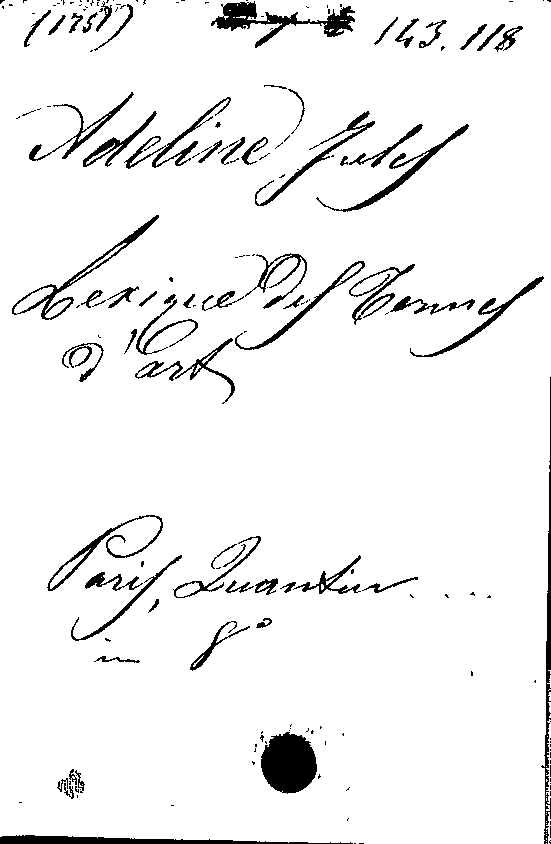 (1751) 143.118
Adeline Jules
Lexique des Termes
d'art
Paris, Quantin ....
in 8°